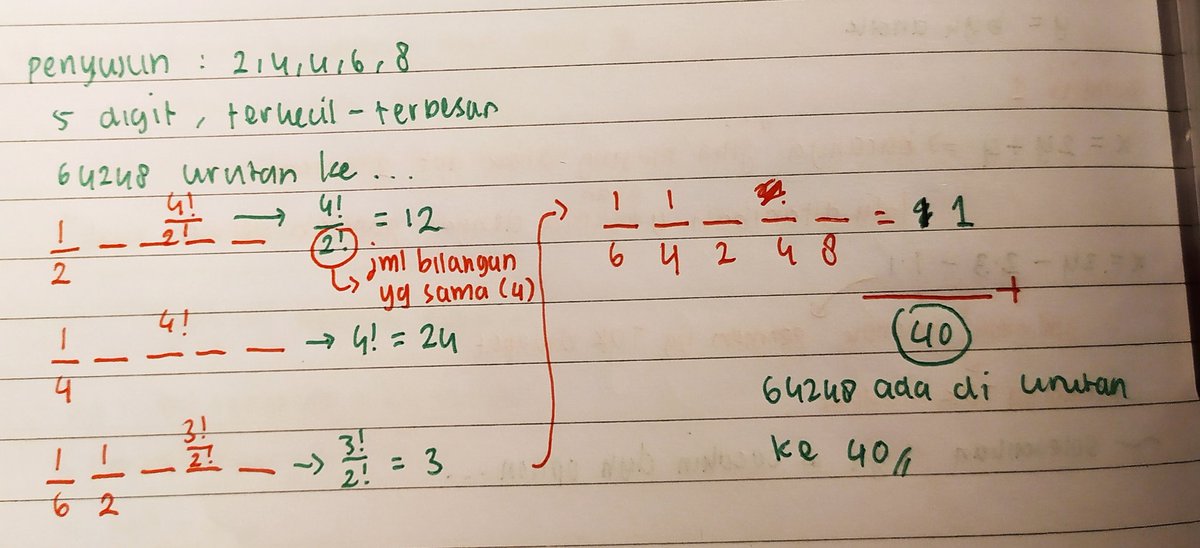 penyusun : 2,4,4,6,8
5 digit, terkecil - terbesar
64248 urutan ke ...
1 4!/2! → 4!/2! = 12
2 _ _ _ _
↳ jml bilangan
yg sama (4)
1 4! → 4! = 24
4 _ _ _ _
1 1 3!/2! → 3!/2! = 3
6 2 _ _ _
→ 1 1 = 1
6 4 2 4 8
+
40
64248 ada di urutan
ke 40,,